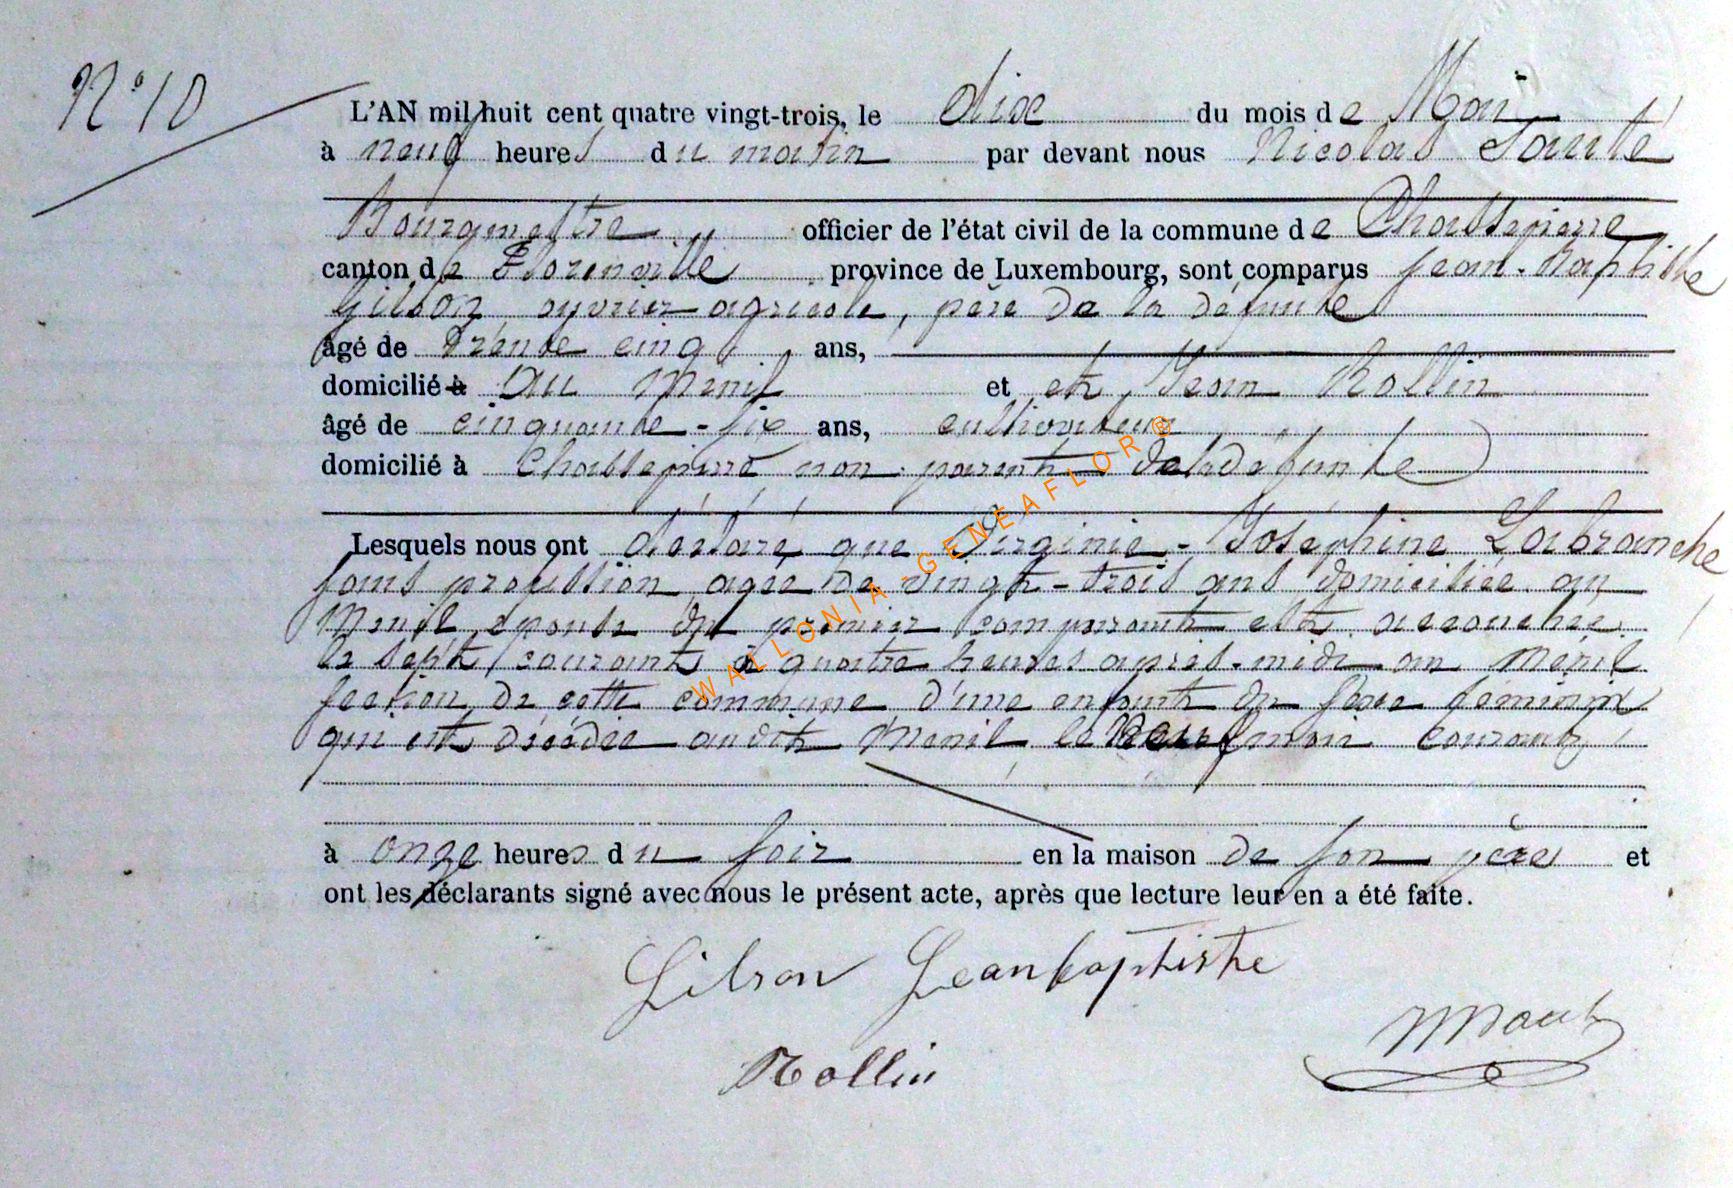 N° 10
L'AN mil huit cent quatre vingt-trois, le dix du mois de Mai
à neuf heures du matin par devant nous Nicolas
Bourgmestre officier de l'état civil de la commune de Chassepierre
canton de Florenville province de Luxembourg, sont comparus Jean-Baptiste
Gilson ouvrier agricole, père de la défunte
âgé de trente cinq ans,
domicilié à Au Menil et et Jean Rollin
âgé de cinquante-six ans, cultivateur
domicilié à Chassepierre non parent de la défunte
Lesquels nous ont déclaré que Virginie-Joséphine Labranche
sans profession agée de vingt-trois ans domiciliée au
Menil épouse du premier comparant est accouchée
le sept courant à quatre heures après-midi au Menil
section de cette commune d'une enfant du sexe féminin
qui est décédée audit Menil le neuf mai courant
à onze heures du soir en la maison de son père et
ont les déclarants signé avec nous le présent acte, après que lecture leur en a été faite.
Gilson Jean baptiste
Rollin
WALLONIA-GENEAFLOR©